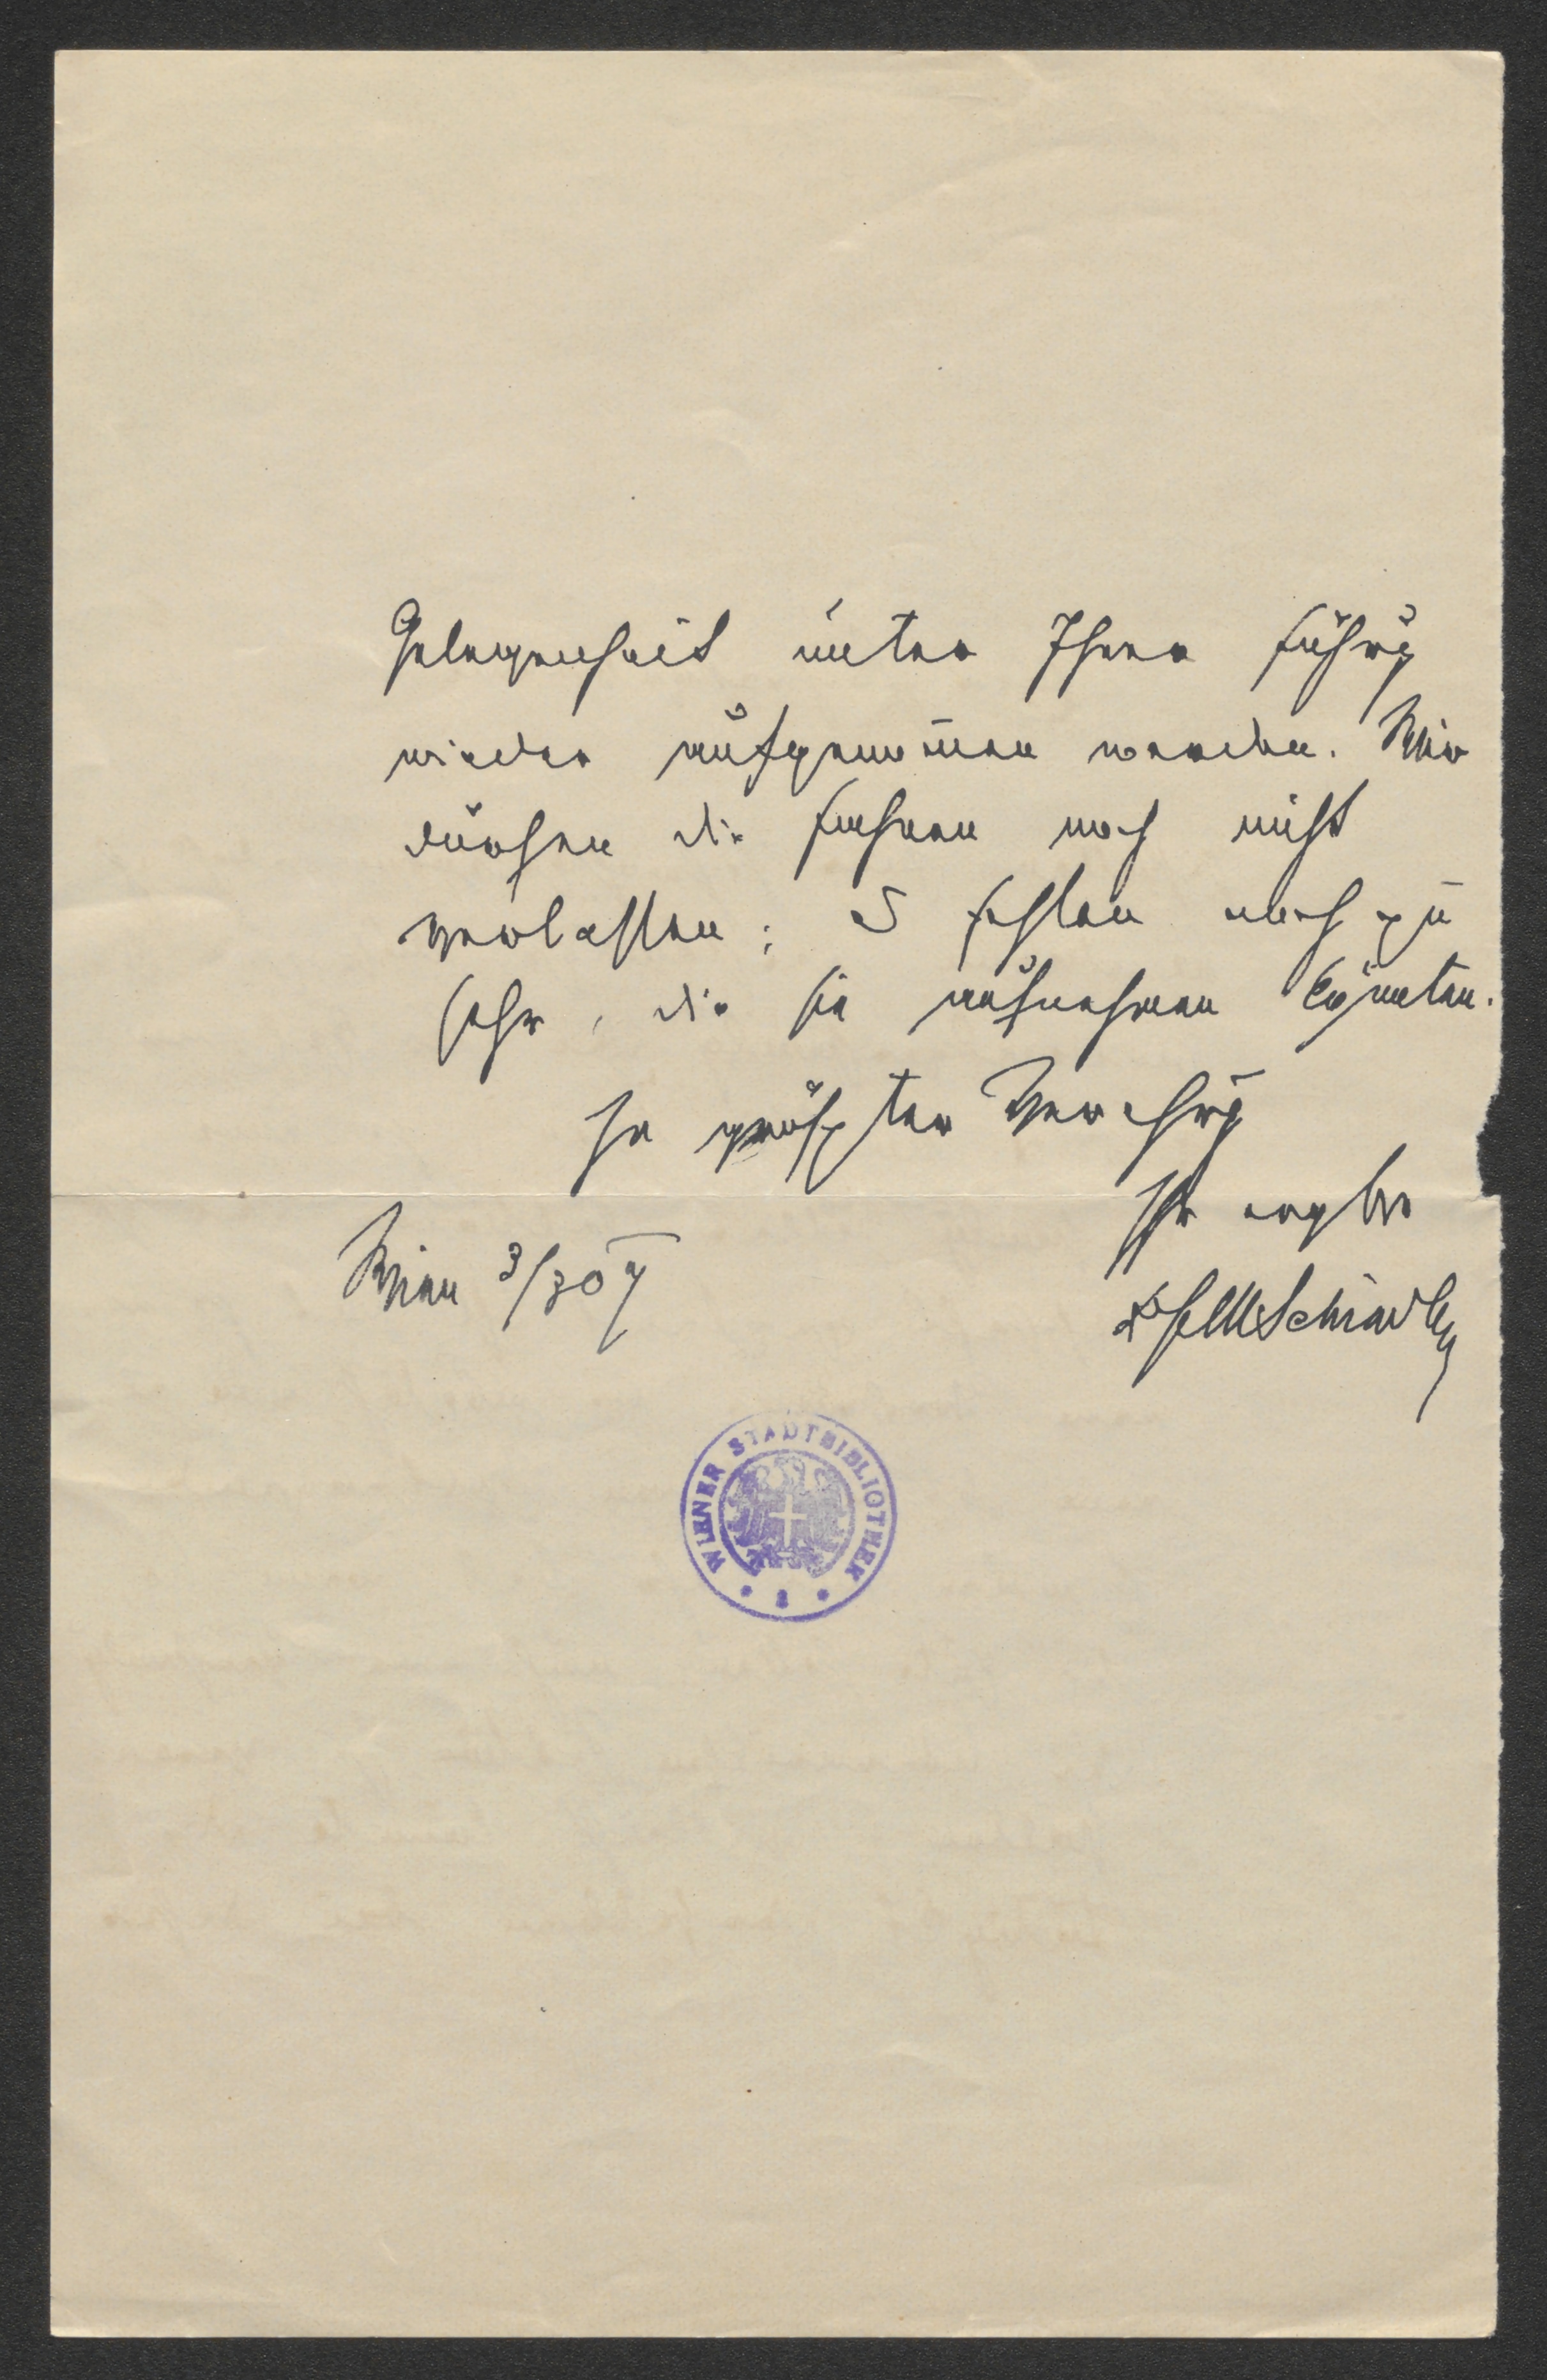 Gelegenheit unter Ihrer Führg
wieder aufgenom̅en werden. Wir
dürfen die Fahnen noch nicht
verlassen; es fehlen noch zu
sehr, die sie aufnehmen könnten.
In größter Verehrg
Ihr ergbr
Wien 3/30
WIENER STADTBIBLIOTHEK